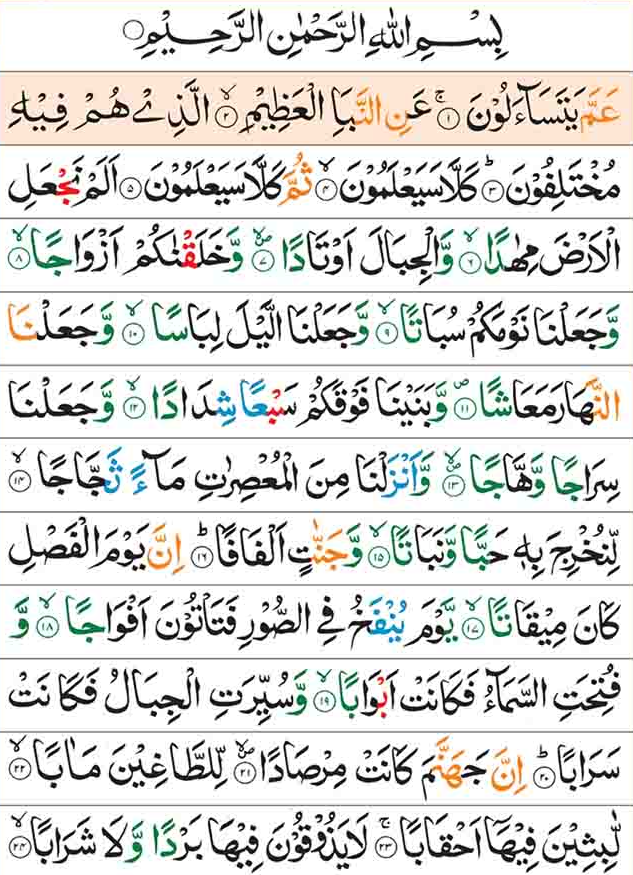 بِسْمِ اللّٰهِ الرَّحْمٰنِ الرَّحِیْمِ
عَمَّ یَتَسَآءَلُوْنَ ۚ﴿۱﴾ عَنِ النَّبَاِ الْعَظِیْمِ ۙ﴿۲﴾ الَّذِیْ هُمْ فِیْهِ
مُخْتَلِفُوْنَ ؕ﴿۳﴾ كَلَّا سَیَعْلَمُوْنَ ۙ﴿۴﴾ ثُمَّ كَلَّا سَیَعْلَمُوْنَ ﴿۵﴾ اَلَمْ نَجْعَلِ
الْاَرْضَ مِهٰدًا ۙ﴿۶﴾ وَّالْجِبَالَ اَوْتَادًا ۪ۙ﴿۷﴾ وَّخَلَقْنٰكُمْ اَزْوَاجًا ۙ﴿۸﴾
وَّجَعَلْنَا نَوْمَكُمْ سُبَاتًا ۙ﴿۹﴾ وَّجَعَلْنَا الَّیْلَ لِبَاسًا ۙ﴿۱۰﴾ وَّجَعَلْنَا
النَّهَارَ مَعَاشًا ۪﴿۱۱﴾ وَّبَنَیْنَا فَوْقَكُمْ سَبْعًا شِدَادًا ۙ﴿۱۲﴾ وَّجَعَلْنَا
سِرَاجًا وَّهَّاجًا ۪ۙ﴿۱۳﴾ وَّاَنْزَلْنَا مِنَ الْمُعْصِرٰتِ مَآءً ثَجَّاجًا ۙ﴿۱۴﴾
لِّنُخْرِجَ بِهٖ حَبًّا وَّنَبَاتًا ۙ﴿۱۵﴾ وَّجَنّٰتٍ اَلْفَافًا ؕ﴿۱۶﴾ اِنَّ یَوْمَ الْفَصْلِ
كَانَ مِیْقَاتًا ۙ﴿۱۷﴾ یَّوْمَ یُنْفَخُ فِی الصُّوْرِ فَتَاْتُوْنَ اَفْوَاجًا ۙ﴿۱۸﴾ وَّ
فُتِحَتِ السَّمَآءُ فَكَانَتْ اَبْوَابًا ۙ﴿۱۹﴾ وَّسُیِّرَتِ الْجِبَالُ فَكَانَتْ
سَرَابًا ؕ﴿۲۰﴾ اِنَّ جَهَنَّمَ كَانَتْ مِرْصَادًا ۪ۙ﴿۲۱﴾ لِّلطَّاغِیْنَ مَاٰبًا ۙ﴿۲۲﴾
لّٰبِثِیْنَ فِیْهَاۤ اَحْقَابًا ۚ﴿۲۳﴾ لَا یَذُوْقُوْنَ فِیْهَا بَرْدًا وَّلَا شَرَابًا ۙ﴿۲۴﴾